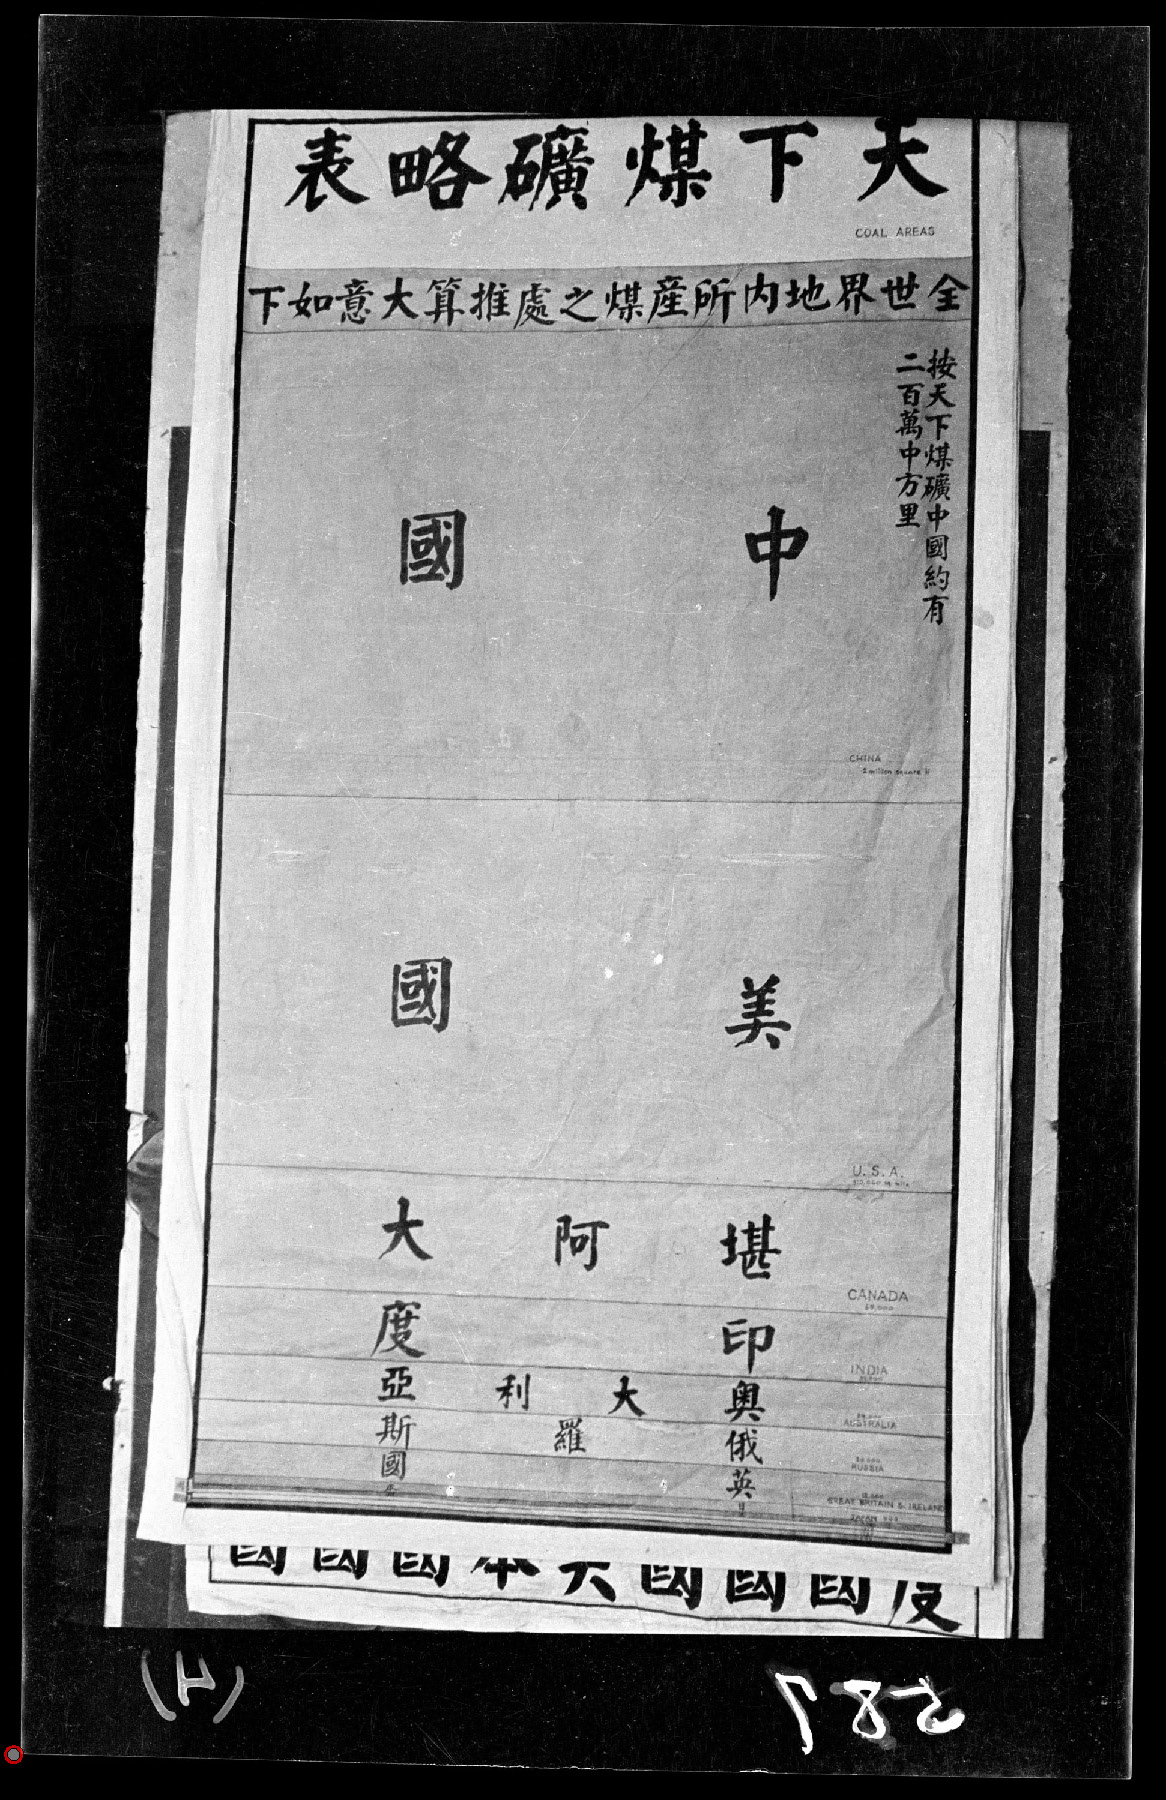 天下煤礦略表
COAL AREAS
全世界地内所産煤之處推算大意如下
按天下煤礦中國約有
二百萬中方里
中國
CHINA
2 million square li
美國
U.S.A.
堪阿大
CANADA
印度
INDIA
奥大利亞
AUSTRALIA
俄羅斯
RUSSIA
英國
GREAT BRITAIN & IRELAND
JAPAN
587
(H)